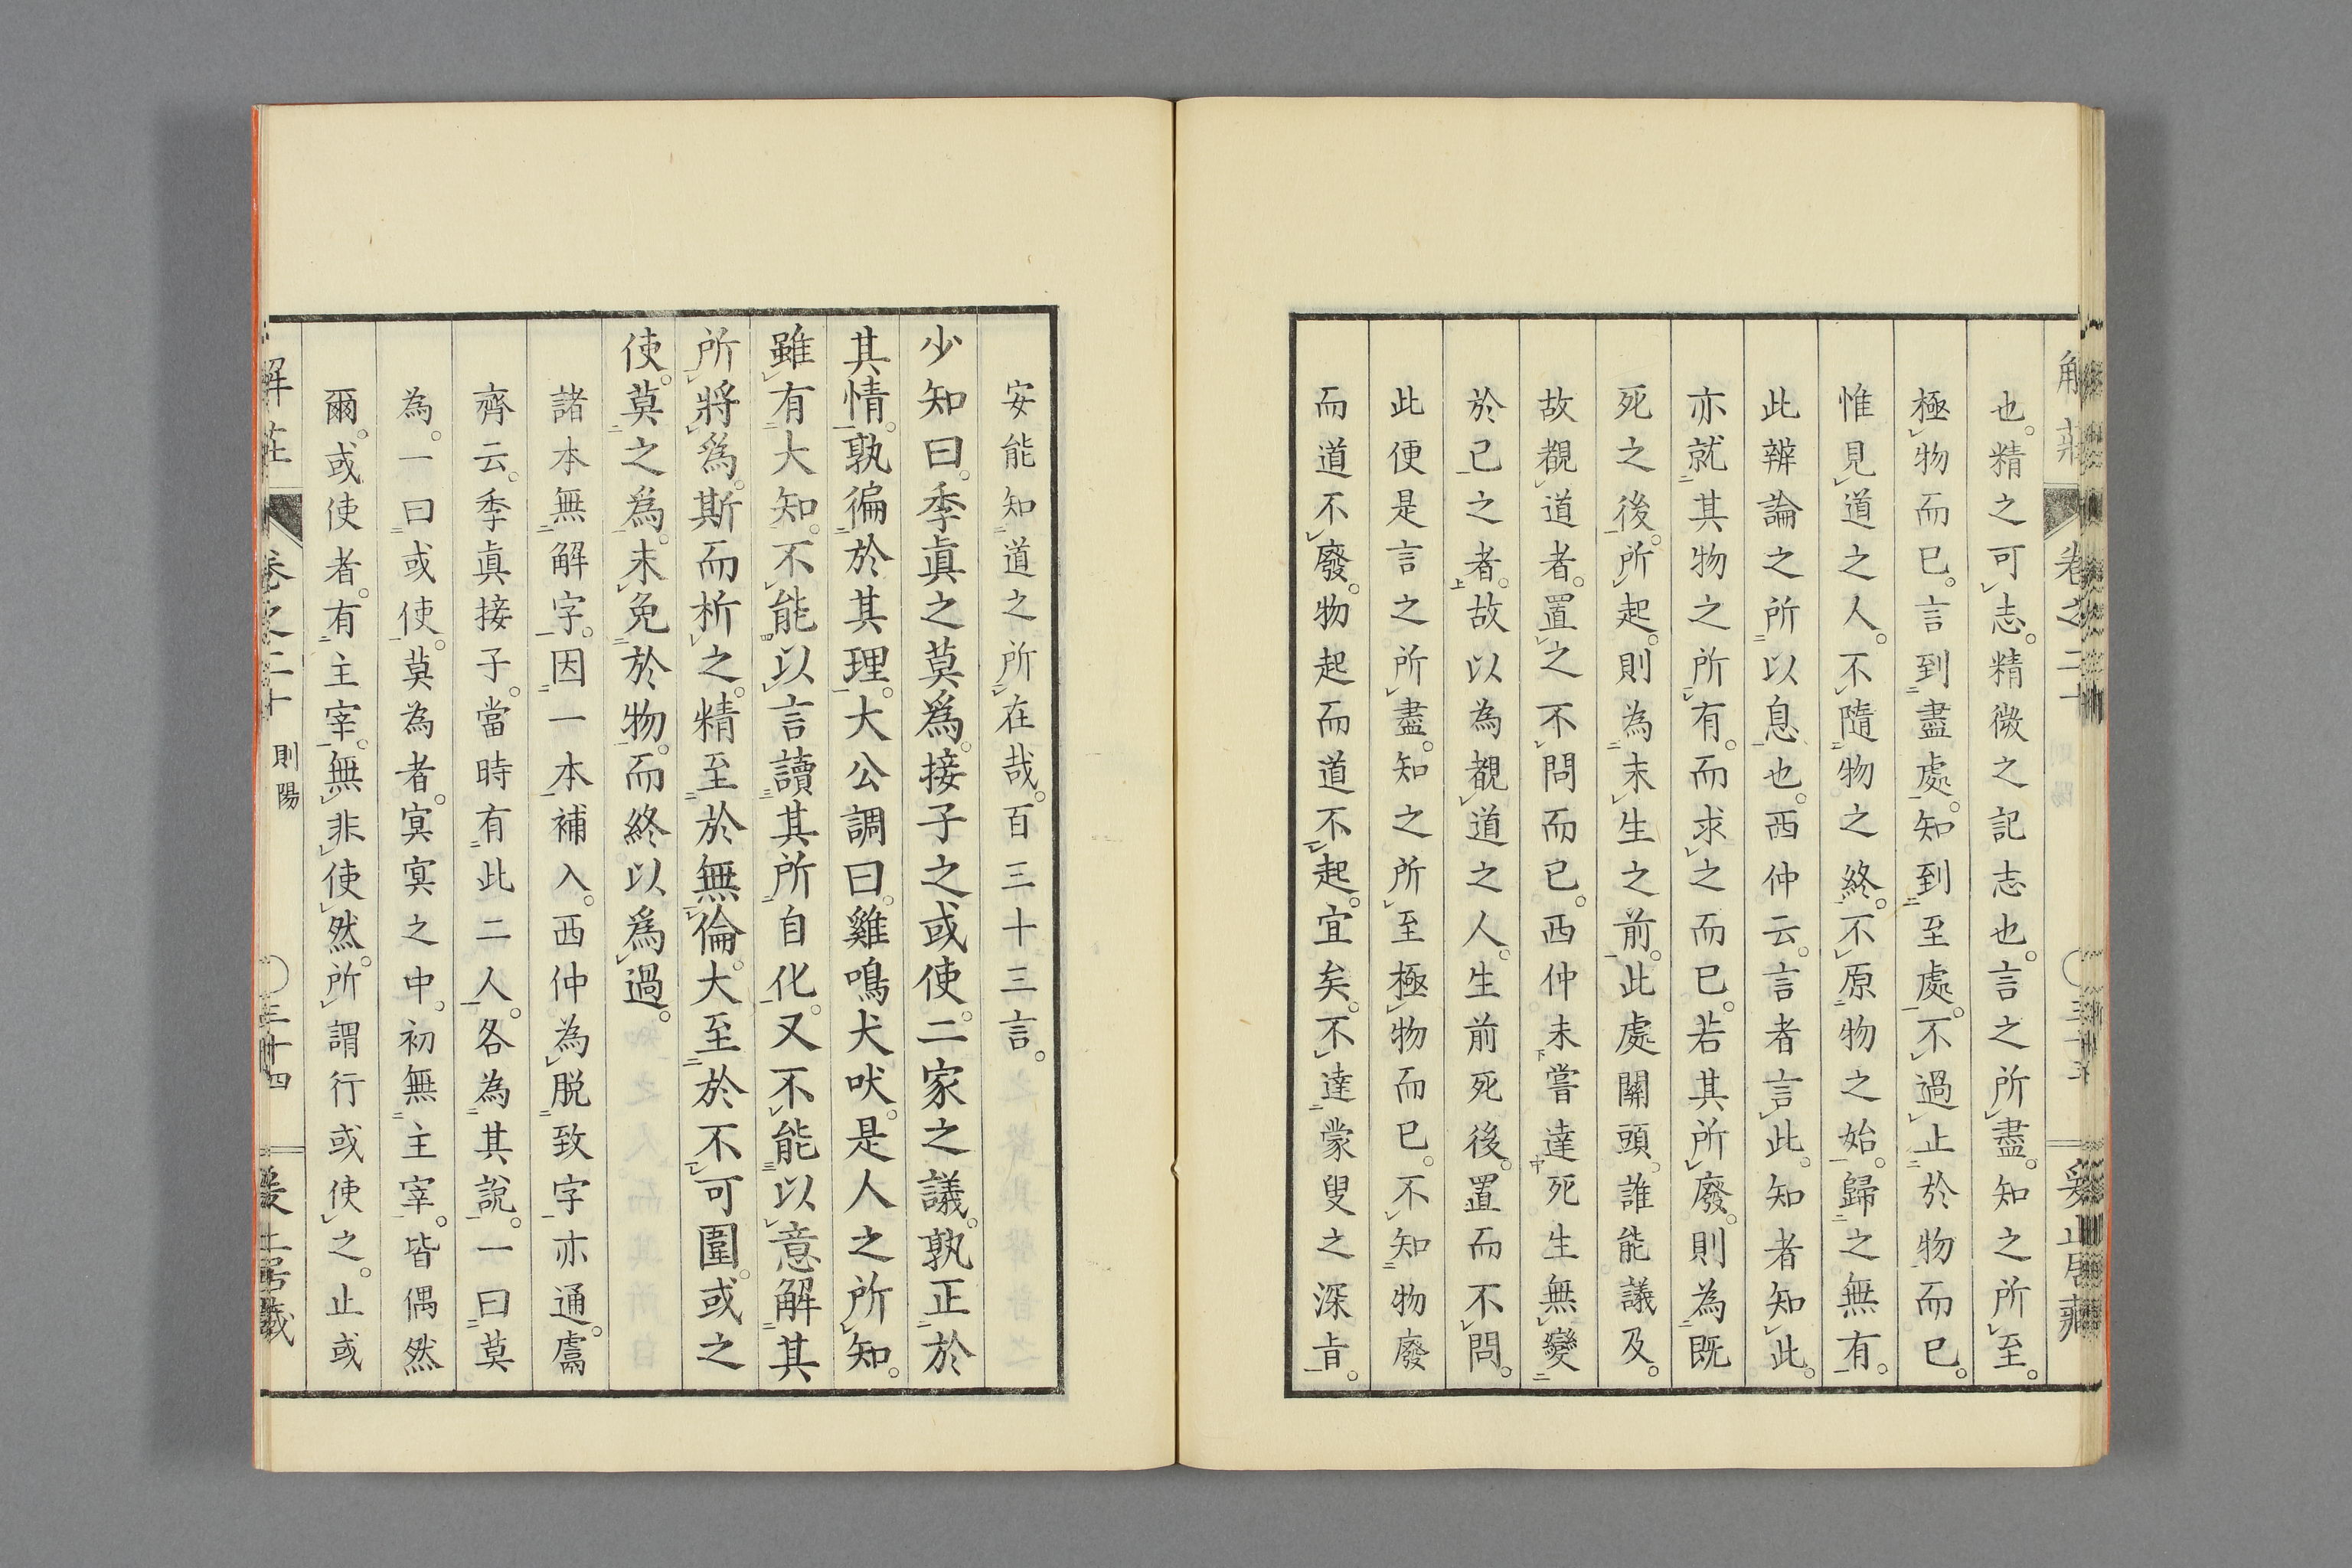 也。精之可志。精微之記志也。言之所盡。知之所至。
極物而已。言到盡處。知到至處。不過止於物而已。
惟見道之人。不隨物之終。不原物之始。歸之無有。
此辨論之所以息也。西仲云。言者言此。知者知此。
亦就其物之所有。而求之而已。若其所廢。則為既
死之後。所起。則為未生之前。此處關頭。誰能議及。
故覩道者。置之不問而已。西仲未嘗達死生無變
於已之者。故以為覩道之人。生前死後。置而不問。
此便是言之所盡。知之所至極物而已。不知物廢
而道不廢。物起而道不起。宜矣。不達蒙叟之深旨。
安能知道之所在哉。百三十三言。
少知曰。季眞之莫爲。接子之或使。二家之議。孰正於
其情。孰徧於其理。大公調曰。雞鳴犬吠。是人之所知。
雖有大知。不能以言讀其所自化。又不能以意解其
所將爲。斯而析之。精至於無倫。大至於不可圍。或之
使。莫之爲。未免於物。而終以爲過。
諸本無解字。因一本補入。西仲為脱致字亦通。鬳
齊云。季眞接子。當時有此二人。各為其說。一曰莫
為。一曰或使。莫為者。冥冥之中。初無主宰。皆偶然
爾。或使者。有主宰。無非使然。所謂行或使之。止或
解莊
卷之二十
則陽
三十四